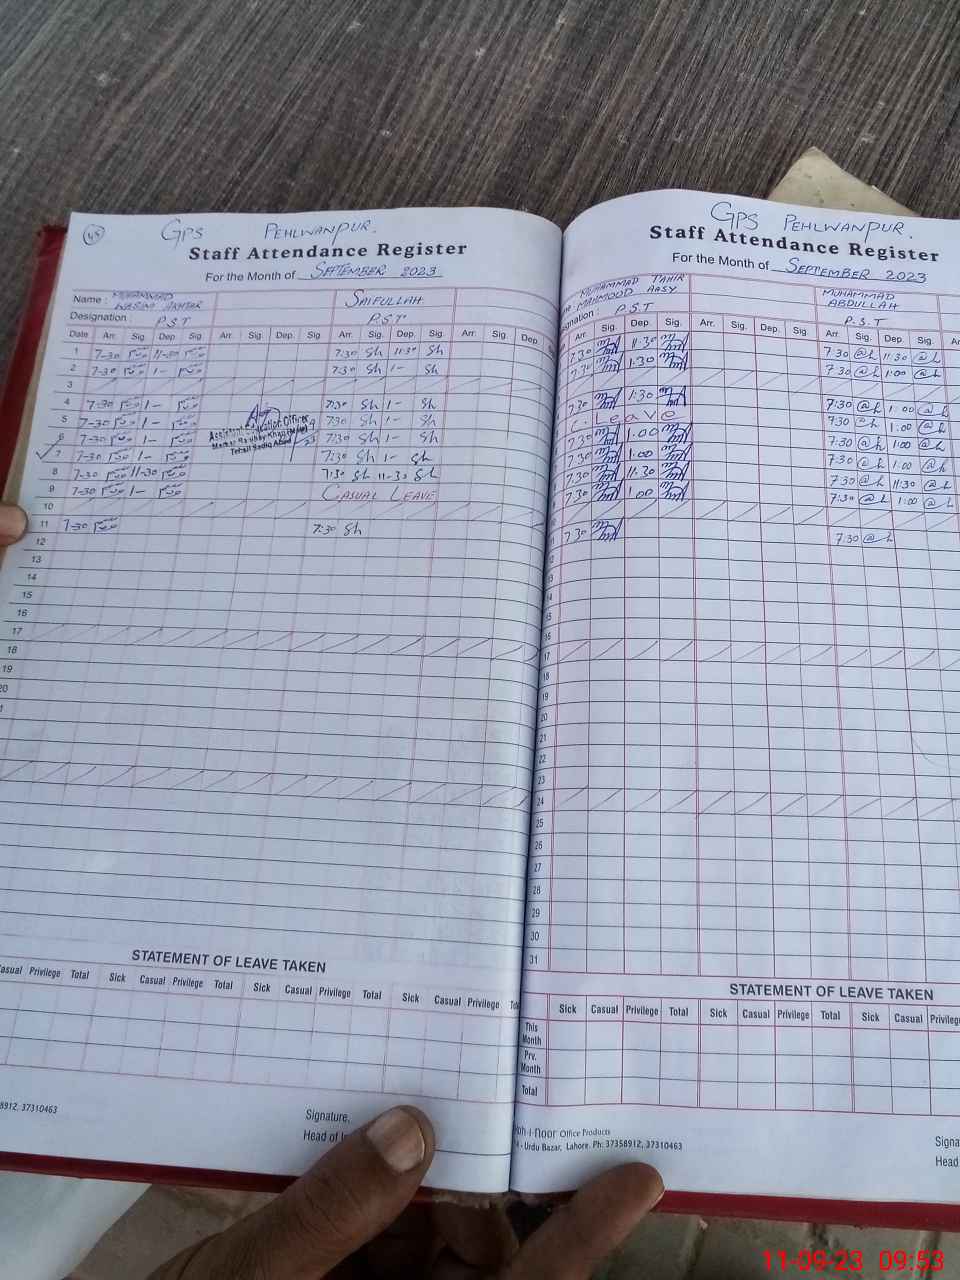 45
GPS PEHLWANPUR.
Staff Attendance Register
For the Month of SEPTEMBER 2023
Name : MUHAMMAD WASIM AKHTAR SAIFULLAH
Designation : P.S.T P.S.T
Date Arr. Sig. Dep Sig. Arr. Sig. Dep. Sig Arr. Sig. Dep. Sig. Arr. Sig. Dep.
1 7-30 11-30 7:30 Sh 11:30 Sh
2 7-30 1- 7:30 Sh 1- Sh
3
4 7-30 1- 7:30 Sh 1- Sh
5 7-30 1- 7:30 Sh 1- Sh
6 7-30 1- 7:30 Sh 1- Sh
7 7-30 1- 7:30 Sh 1- Sh
8 7-30 11-30 7:30 Sh 11-30 Sh
9 7-30 1- CASUAL LEAVE
10
11 7-30 7:30 Sh
12
13
14
15
16
17
18
19
20
Assistant Education Officer
Tehsil Sadiq Abad
STATEMENT OF LEAVE TAKEN
Casual Privilege Total Sick Casual Privilege Total Sick Casual Privilege Total Sick Casual Privilege
8912, 37310463
Signature.
Head of
GPS PEHLWANPUR.
Staff Attendance Register
For the Month of SEPTEMBER 2023
MUHAMMAD TAHIR MAHMOOD AASY MUHAMMAD ABDULLAH
P.S.T P.S.T
Sig. Dep. Sig. Arr. Sig. Dep. Sig. Arr. Sig. Dep. Sig.
7:30 11:30 7:30 @h 11:30 @h
7:30 1:30 7:30 @h 1:00 @h
7:30 1:30 7:30 @h 1:00 @h
C. Leave 7:30 @h 1:00 @h
7:30 1.00 7:30 @h 1:00 @h
7:30 1:00 7:30 @h 1:00 @h
7:30 11.30 7:30 @h 11:30 @h
7:30 1.00 7:30 @h 1:00 @h
11 7:30 7:30 @h
12
13
14
15
16
17
18
19
20
21
22
23
24
25
26
27
28
29
30
31
STATEMENT OF LEAVE TAKEN
Sick Casual Privilege Total Sick Casual Privilege Total Sick Casual Privilege
This Month
Prv. Month
Total
Office Products
Urdu Bazar, Lahore. Ph: 37358912, 37310463
Head
11-09-23 09:53